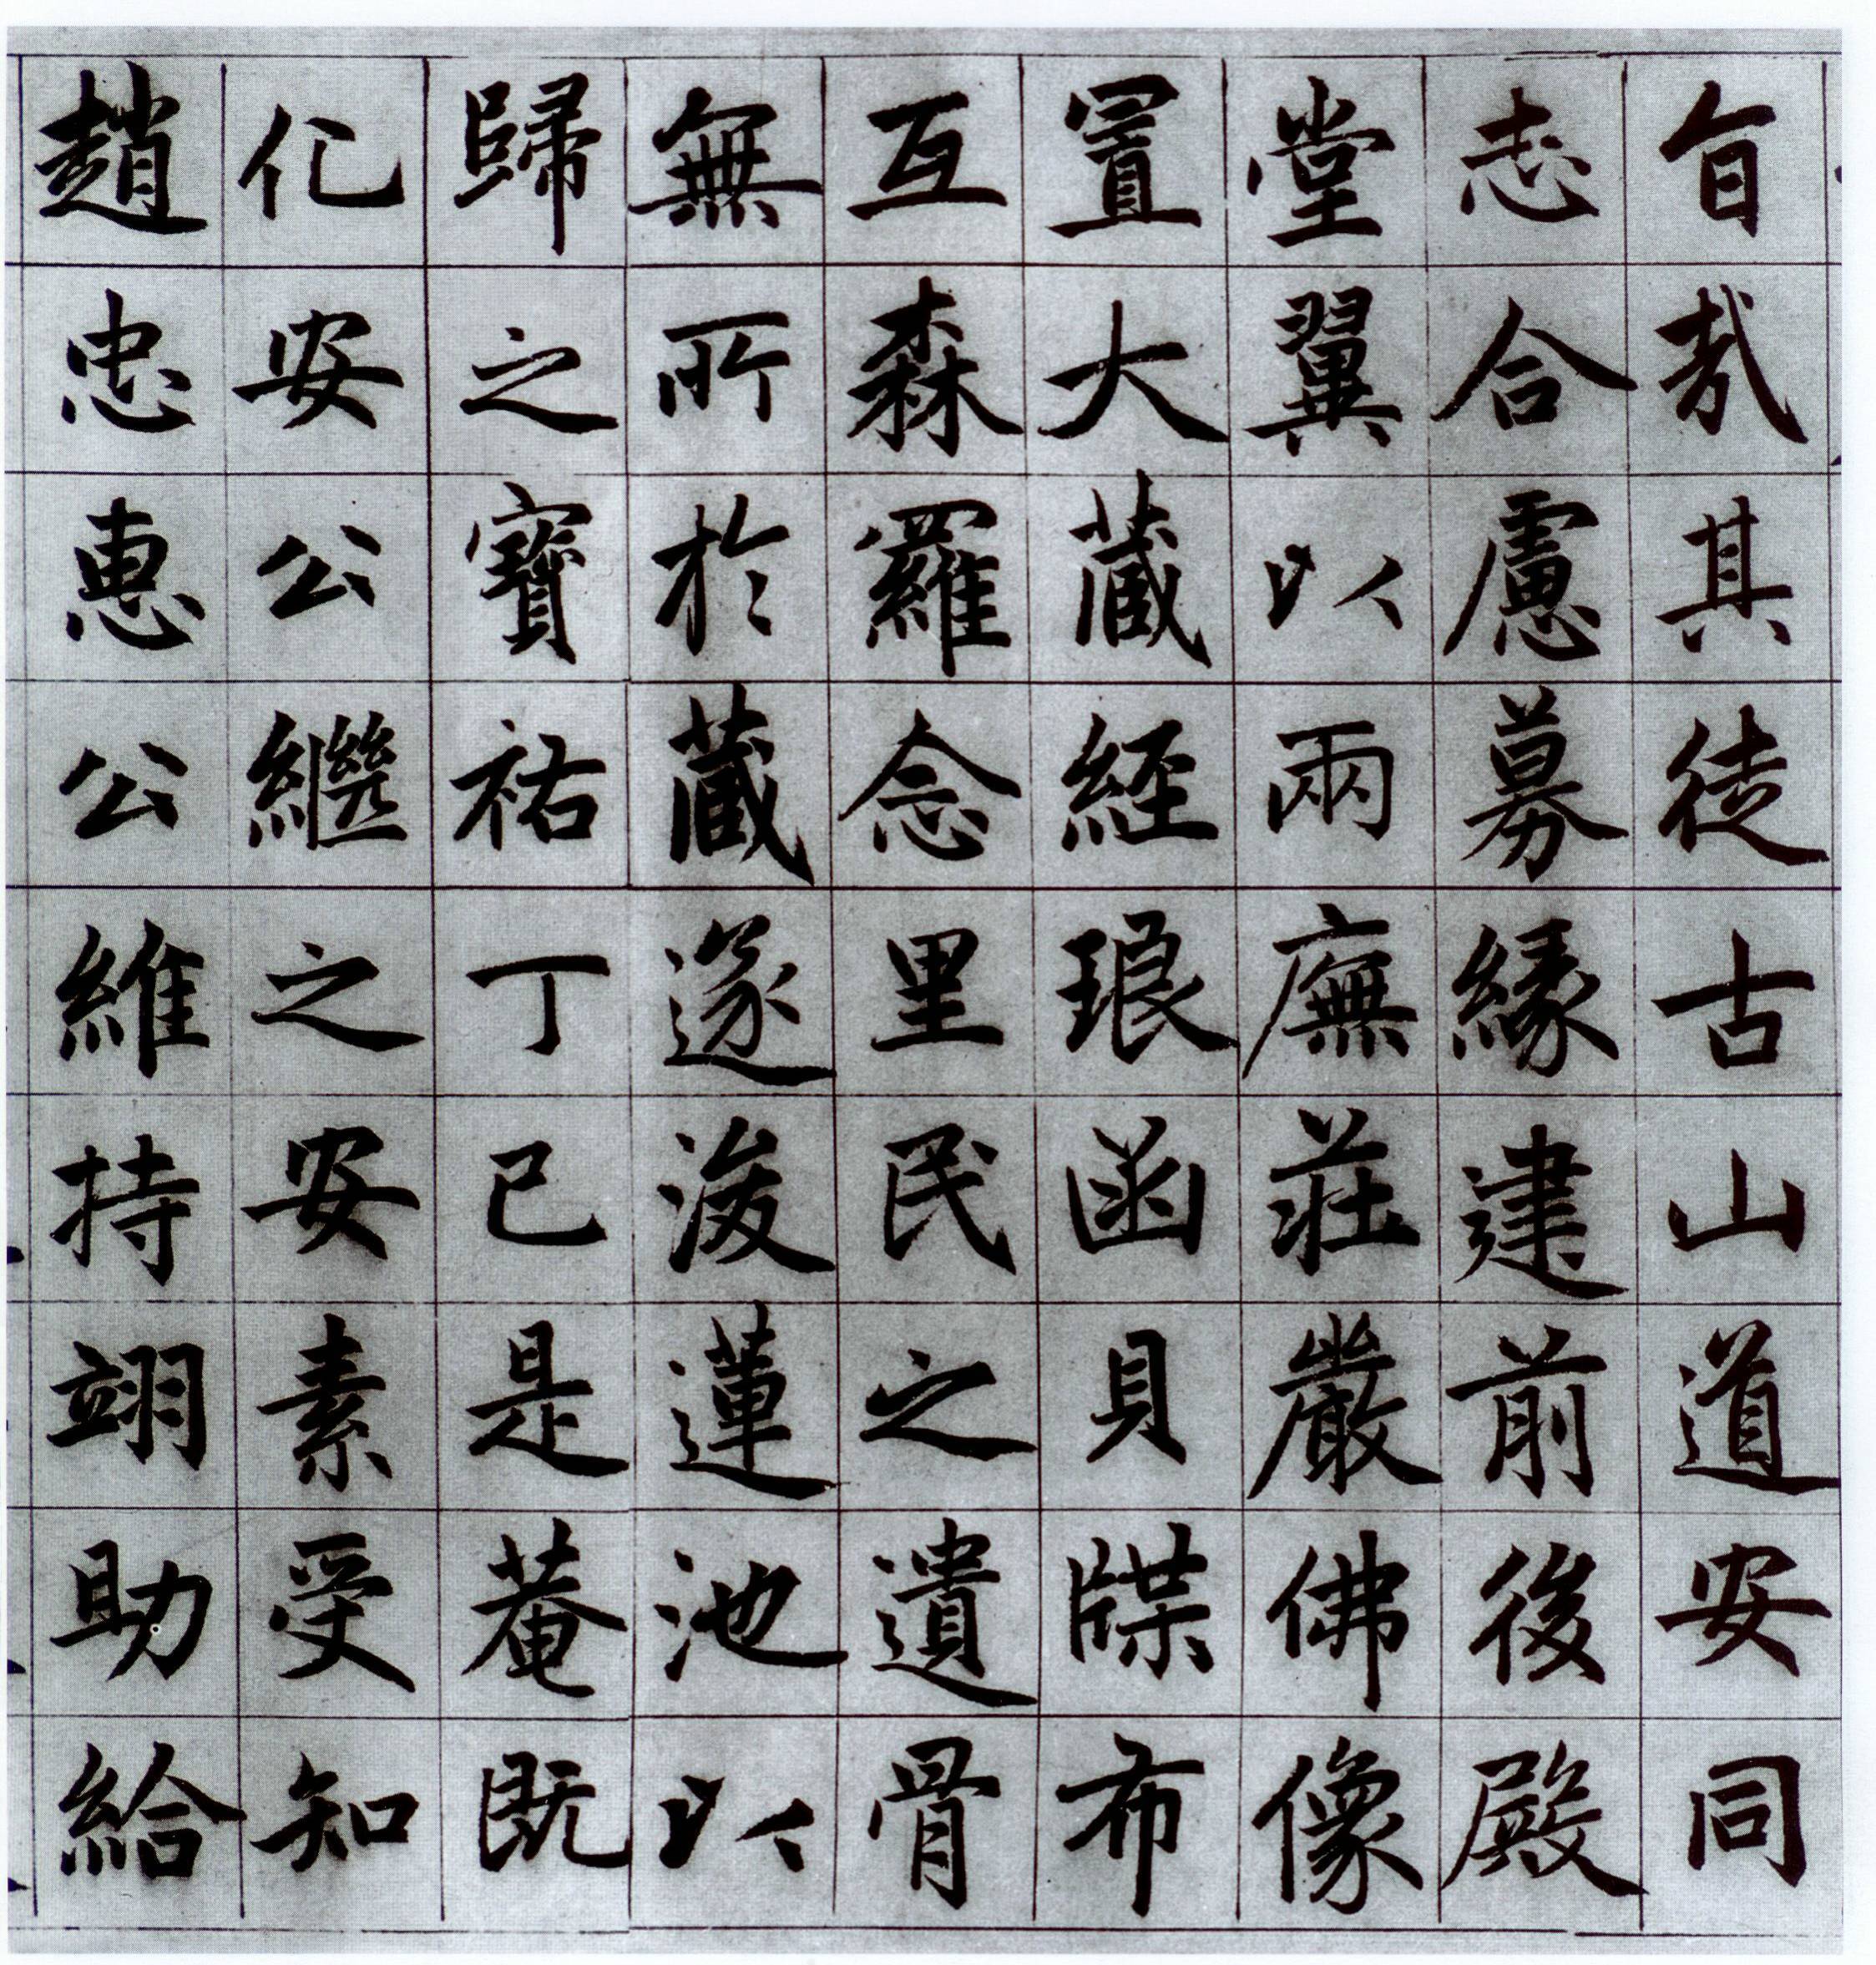 旨哉其徒古山道安同
志合慮募緣建前後殿
堂翼以兩廡莊嚴佛像
置大藏經琅函貝牒布
互森羅念里民之遺骨
無所於藏遂浚蓮池以
歸之寶祐丁巳是菴既
化安公繼之安素受知
趙忠惠公維持翊助給